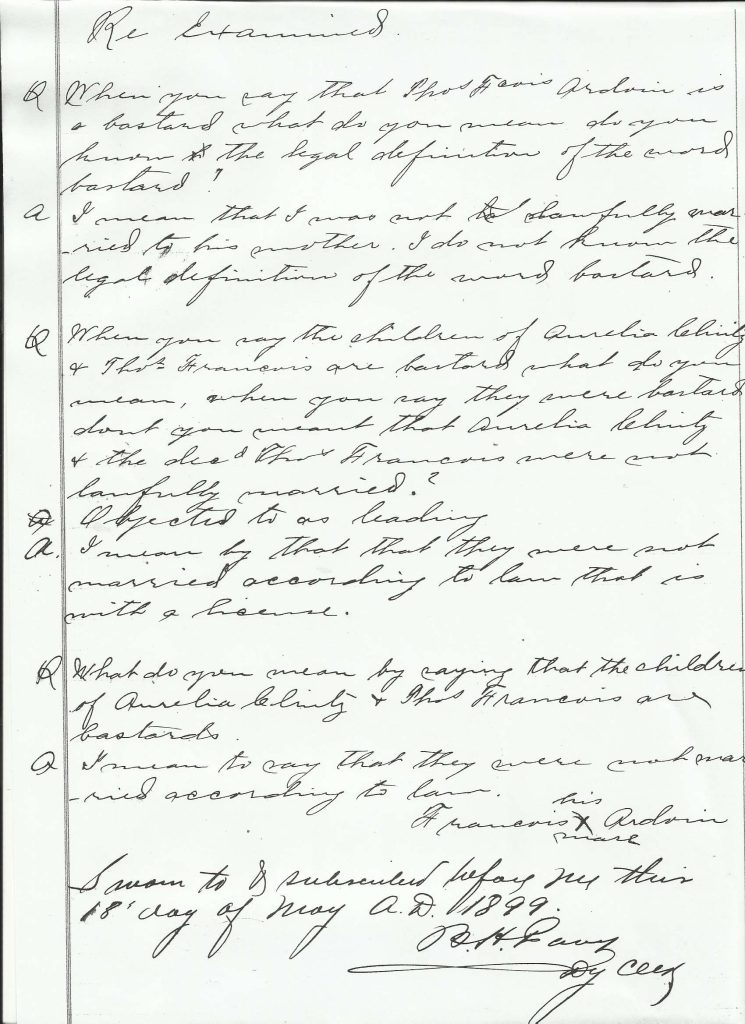 Re Examined.
Q When you say that Thos Fcois Ardoin is
a bastard what do you mean do you
know the legal definition of the word
bastard?
A I mean that I was not lawfully mar
-ried to his mother. I do not know the
legal definition of the word bastard.
Q When you say the children of Aurelia
& Thos Francois are bastard what do you
mean, when you say they were bastard
dont you meant that Aurelia
& the decd Thos Francois were not
lawfully married.?
Objected to as leading
A. I mean by that that they were not
married according to law that is
with a license.
Q What do you mean by saying that the children
of Aurelia & Thos Francois are
bastards.
A I mean to say that they were not mar
-ried according to law.
his
Francois X Ardoin
mark
Sworn to & subscribed before me this
18' day of May A.D. 1899.
B.H. Pavy
Dy Clerk